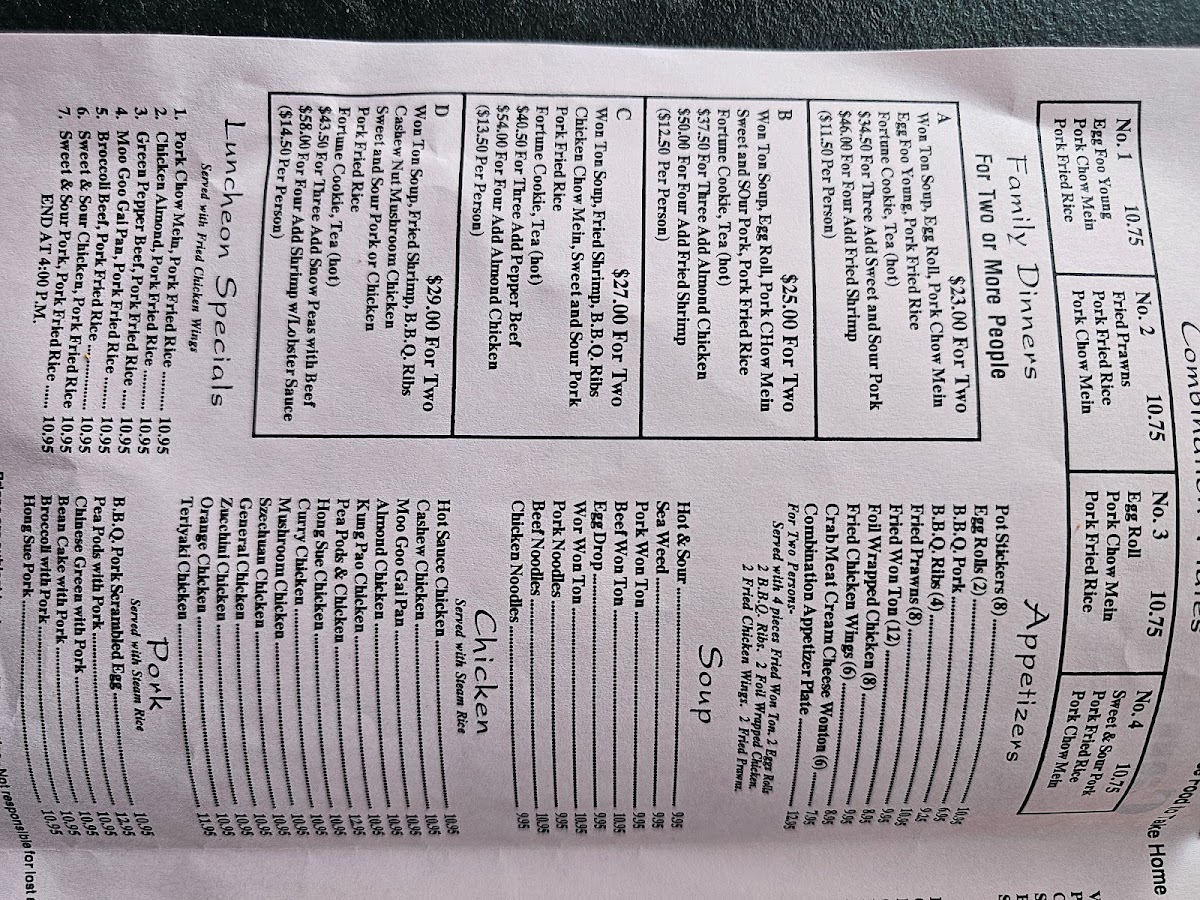 Take Home
No. 1 10.75
Egg Foo Young
Pork Chow Mein
Pork Fried Rice
No. 2 10.75
Fried Prawns
Pork Fried Rice
Pork Chow Mein
No. 3 10.75
Egg Roll
Pork Chow Mein
Pork Fried Rice
No. 4 10.75
Sweet & Sour Pork
Pork Fried Rice
Pork Chow Mein
Family Dinners
For Two or More People
A $23.00 For Two
Won Ton Soup, Egg Roll, Pork Chow Mein
Egg Foo Young, Pork Fried Rice
Fortune Cookie, Tea (hot)
$34.50 For Three Add Sweet and Sour Pork
$46.00 For Four Add Fried Shrimp
($11.50 Per Person)
B $25.00 For Two
Won Ton Soup, Egg Roll, Pork CHow Mein
Sweet and SOur Pork, Pork Fried Rice
Fortune Cookie, Tea (hot)
$37.50 For Three Add Almond Chicken
$50.00 For Four Add Fried Shrimp
($12.50 Per Person)
C $27.00 For Two
Won Ton Soup, Fried Shrimp, B.B.Q. Ribs
Chicken Chow Mein, Sweet and Sour Pork
Pork Fried Rice
Fortune Cookie, Tea (hot)
$40.50 For Three Add Pepper Beef
$54.00 For Four Add Almond Chicken
($13.50 Per Person)
D $29.00 For Two
Won Ton Soup, Fried Shrimp, B.B.Q. Ribs
Cashew Nut Mushroom Chicken
Sweet and Sour Pork or Chicken
Pork Fried Rice
Fortune Cookie, Tea (hot)
$43.50 For Three Add Snow Peas with Beef
$58.00 For Four Add Shrimp w/Lobster Sauce
($14.50 Per Person)
Luncheon Specials
Served with Fried Chicken Wings
1. Pork Chow Mein, Pork Fried Rice ........ 10.95
2. Chicken Almond, Pork Fried Rice ........ 10.95
3. Green Pepper Beef, Pork Fried Rice ........ 10.95
4. Moo Goo Gal Pan, Pork Fried Rice ...... 10.95
5. Broccoli Beef, Pork Fried Rice ........ 10.95
6. Sweet & Sour Chicken, Pork Fried Rice 10.95
7. Sweet & Sour Pork, Pork Fried Rice ...... 10.95
END AT 4:00 P.M.
Appetizers
Pot Stickers (8) ........ 10.95
Egg Rolls (2) ........ 6.95
B.B.Q. Pork ........
B.B.Q. Ribs (4) ........ 10.95
Fried Prawns (8) ........ 9.95
Fried Won Ton (12) ........ 8.95
Foil Wrapped Chicken (8) ........ 9.95
Fried Chicken Wings (6) ........ 8.95
Crab Meat Cream Cheese Wonton (6) ........ 7.95
Combination Appetizer Plate ........ 12.95
For Two Persons-
Served with 4 pieces Fried Won Ton, 2 Egg Rolls
2 B.B.Q. Ribs, 2 Foil Wrapped Chicken,
2 Fried Chicken Wings, 2 Fried Prawns.
Soup
Hot & Sour ........ 9.95
Sea Weed ........ 9.95
Pork Won Ton ........ 9.95
Beef Won Ton ........ 10.95
Egg Drop ........ 9.95
Wor Won Ton ........ 10.95
Pork Noodles ........ 9.95
Beef Noodles ........ 10.95
Chicken Noodles ........ 9.95
Chicken
Served with Steam Rice
Hot Sauce Chicken ........ 10.95
Cashew Chicken ........ 10.95
Moo Goo Gai Pan ........ 10.95
Almond Chicken ........ 10.95
Kung Pao Chicken ........ 10.95
Pea Pods & Chicken ........ 12.95
Hong Sue Chicken ........ 10.95
Curry Chicken ........ 10.95
Mushroom Chicken ........ 10.95
Szechuan Chicken ........ 10.95
General Chicken ........ 10.95
Zucchini Chicken ........ 10.95
Orange Chicken ........ 10.95
Teriyaki Chicken ........ 11.95
Pork
Served with Steam Rice
B.B.Q. Pork Scrambled Egg ........ 10.95
Pea Pods with Pork ........ 12.95
Chinese Green with Pork ........ 10.95
Bean Cake with Pork ........ 10.95
Broccoli with Pork ........ 10.95
Hong Sue Pork ........ 10.95
Not responsible for lost